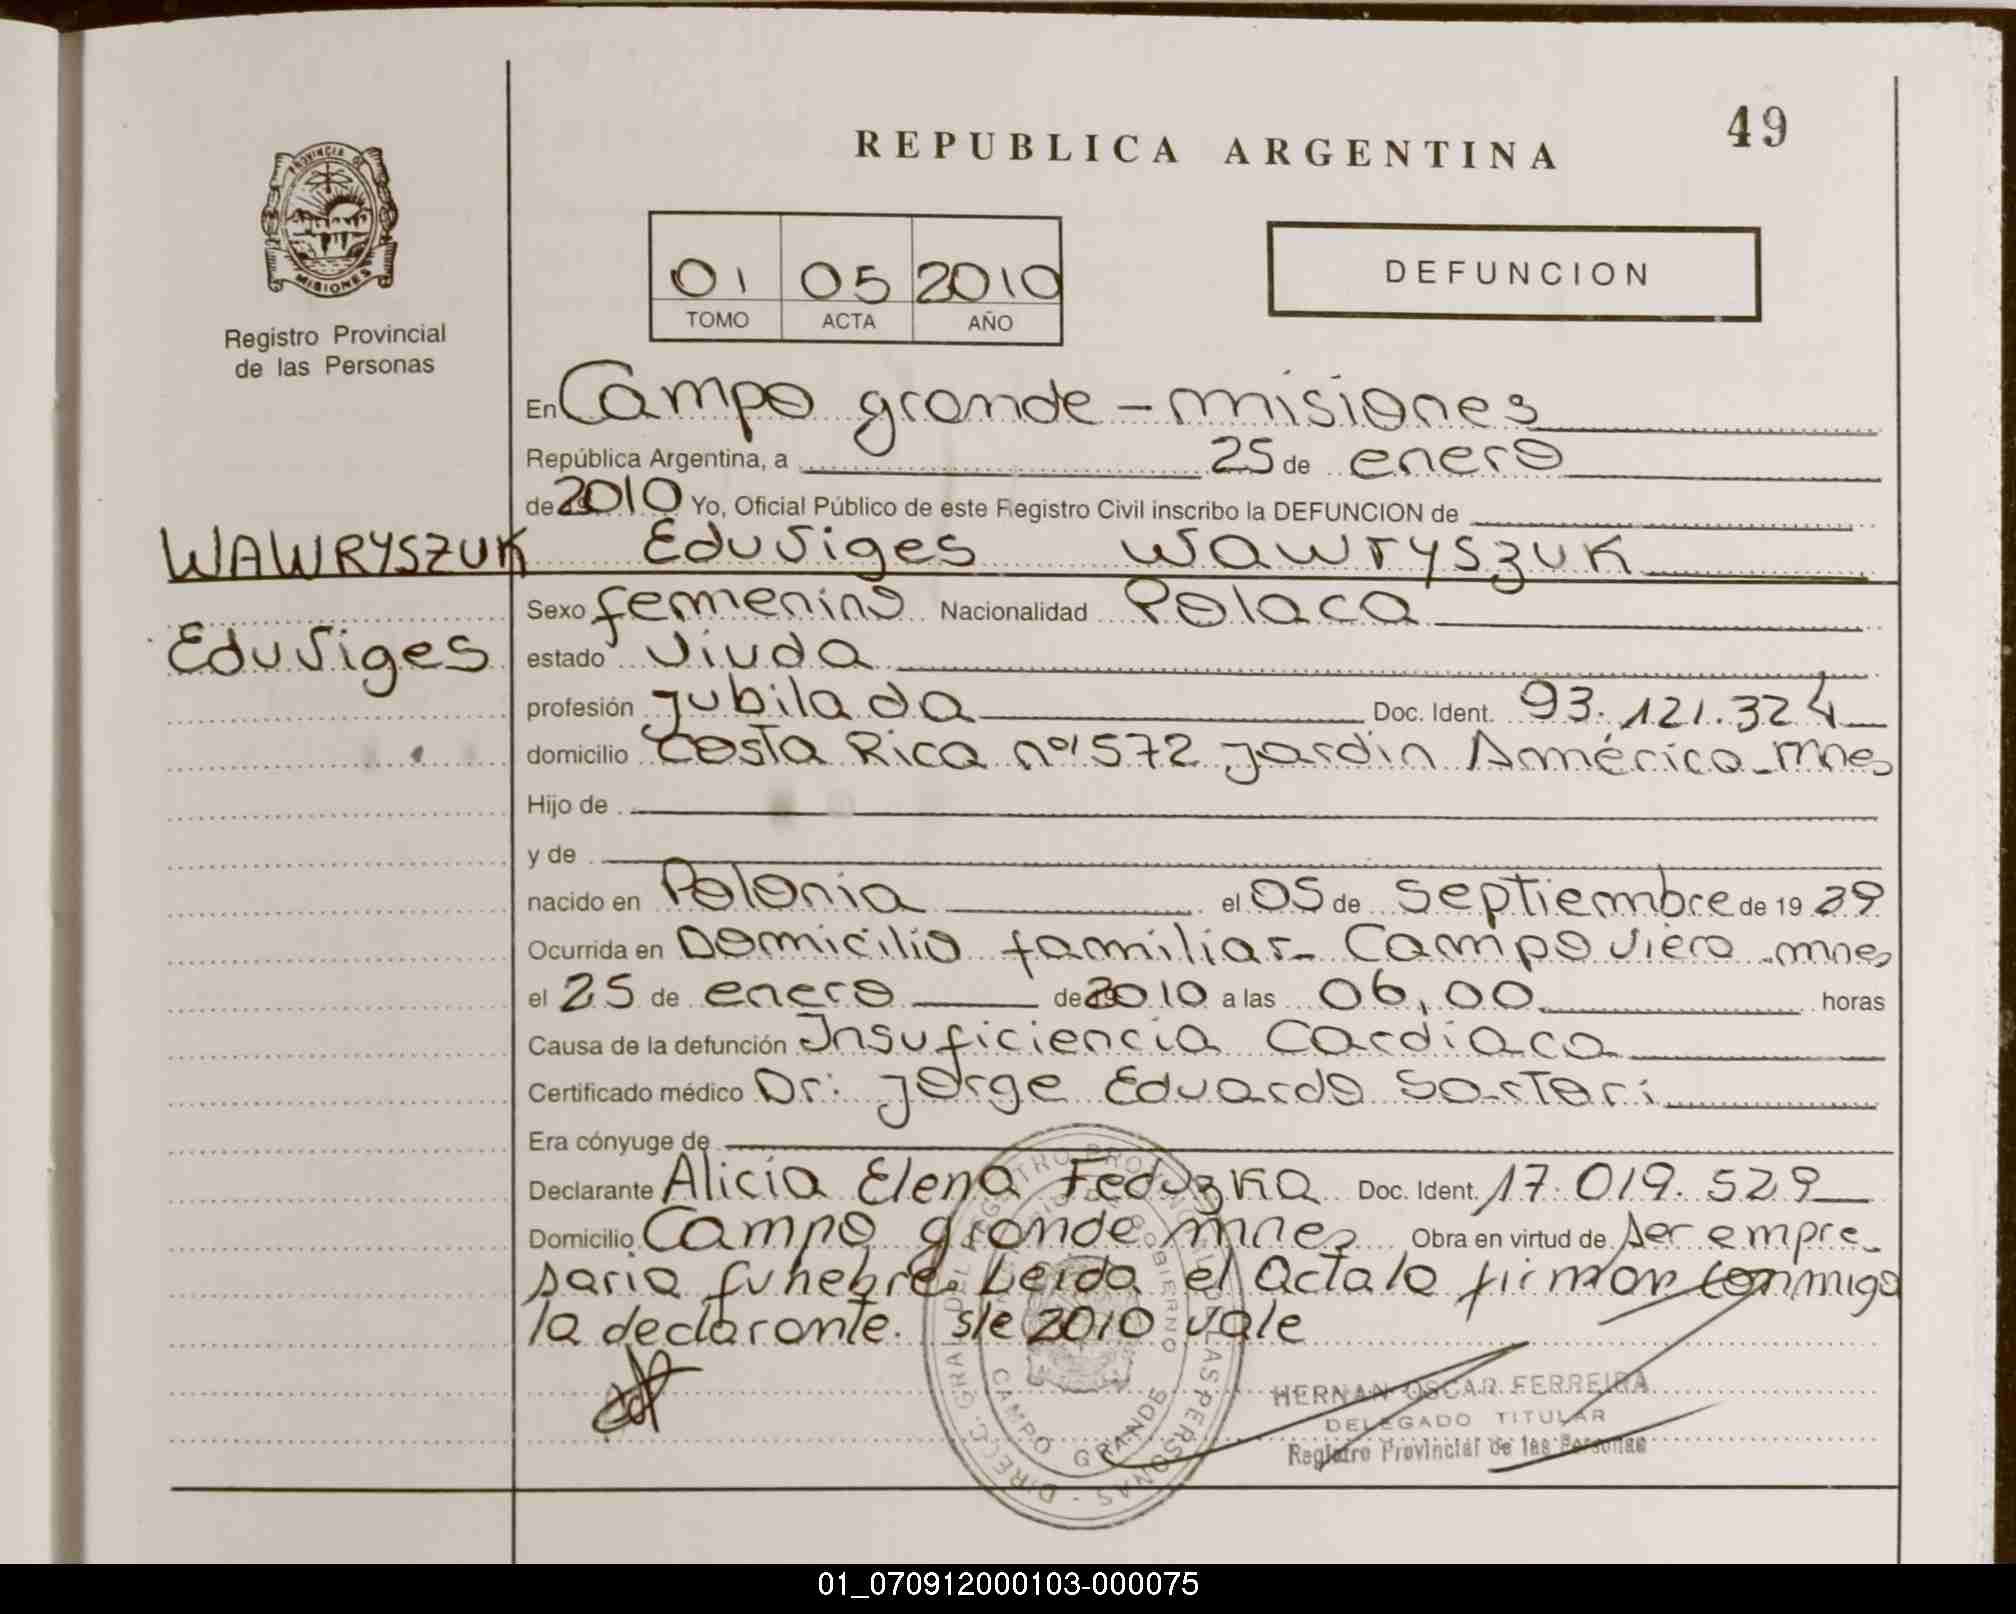 49
REPUBLICA ARGENTINA
PROVINCIA DE
MISIONES
Registro Provincial
de las Personas
01 05 2010
TOMO ACTA AÑO
DEFUNCION
En Campo grande - misiones
República Argentina, a 25 de enero
de 2010 Yo, Oficial Público de este Registro Civil inscribo la DEFUNCION de
WAWRYSZUK Eduviges Wawryszuk
Sexo femenino Nacionalidad Polaca
Eduviges
estado Viuda
profesión jubilada Doc. Ident. 93.121.324
domicilio Costa Rica nº 1572 jardin América - mnes
Hijo de
y de
nacido en Polonia el 05 de septiembre de 19 39
Ocurrida en Domicilio familiar - Campo viera - mnes
el 25 de enero de 2010 a las 06,00 horas
Causa de la defunción Insuficiencia Cardiaca
Certificado médico Dr: jorge Eduardo Sartori
Era cónyuge de
Declarante Alicia Elena Feduzka Doc. Ident. 17.019.529
Domicilio Campo grande mnes Obra en virtud de ser empre-
saria funebre. Leida el Acta la firman conmigo
la declarante. s/e 2010 vale
CAMPO GRANDE
HERNAN OSCAR FERREIRA
DELEGADO TITULAR
Registro Provincial de las Personas
01_070912000103-000075